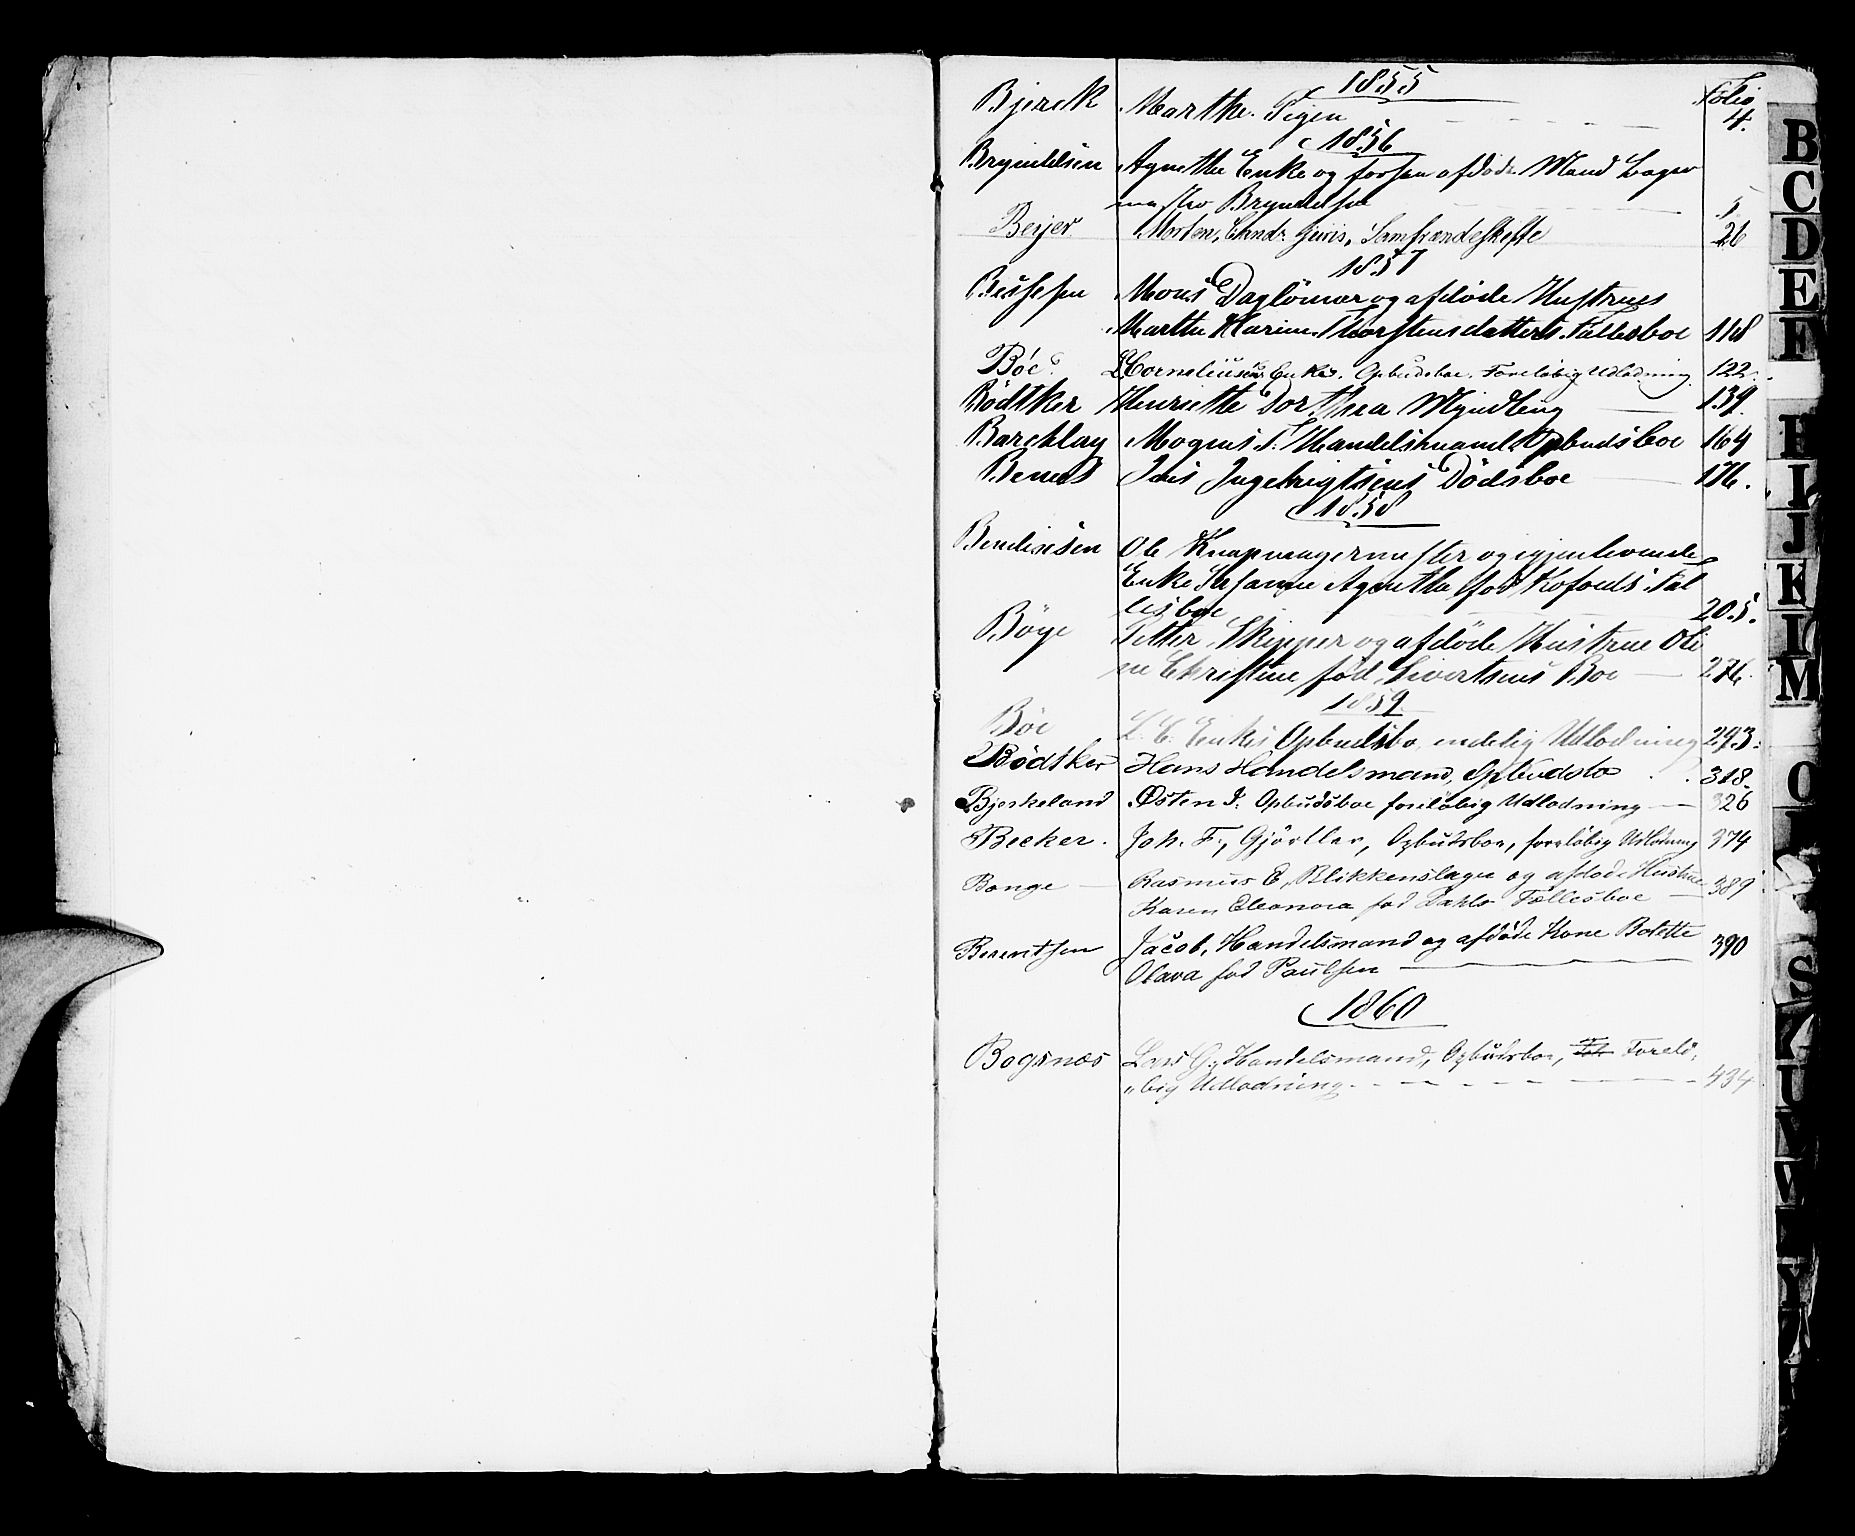 1855
Folio
Bjerck Marthe. Pigen 4.
1856
Bryndelsen Agnethe Enke og forhen afdøde Mand Lager
mester Bryndelsen 5
Beyer Morten, Cand: juris, Samfrændeskifte 26
1857
Mons Daglönner og afdöde Hustrues
Marthe Karine Thorstensdatters Fællesboe 118
Böe L Corneliusens Enkes. Opbudsboe. Foreløbig Udlodning. 122.
Bödtker Henriette Dorthea Myndling 139.
Barchlay Mogens T. Handelsmand Opbudsboe 164
Berned Jens Ingebrigtsens Dödsboe 176.
1858
Bendixsen Ole Knapmagermester og igjenlevende
Enke Susanne Agnetha föd Kofoeds Fæl
lesboe 205.
Böye Petter, Skipper og afdöde Hustrue Oli
ne Christine föd Sivertsens Boe 276.
1859
Böe L. C. Enkes Opbudsbo endelig Udlodning 293.
Bödtker Hans Handelsmand, Opbudsbo 318.
Bjerkeland Østen J. Opbudsboe foreløbig Udlodning 326
Becker. Joh. F., Gjörtler, Opbudsboe, foreløbig Udlodning 374
Bange Rasmus E, Blikkenslager og afdøde Hustrue 389
Karen Eleonora fød Dahls Fællesboe
Berentsen Jacob, Handelsmand og afdøde Kone Bolette 390
Olava fød Paulsen
1860
Bogsnæs Lars G., Handelsmand, Opbudsboe, Forelö,
"big Udlodning 434
B
C
D
E
F
H
I
J
K
L
M
O
S
U
V
Y